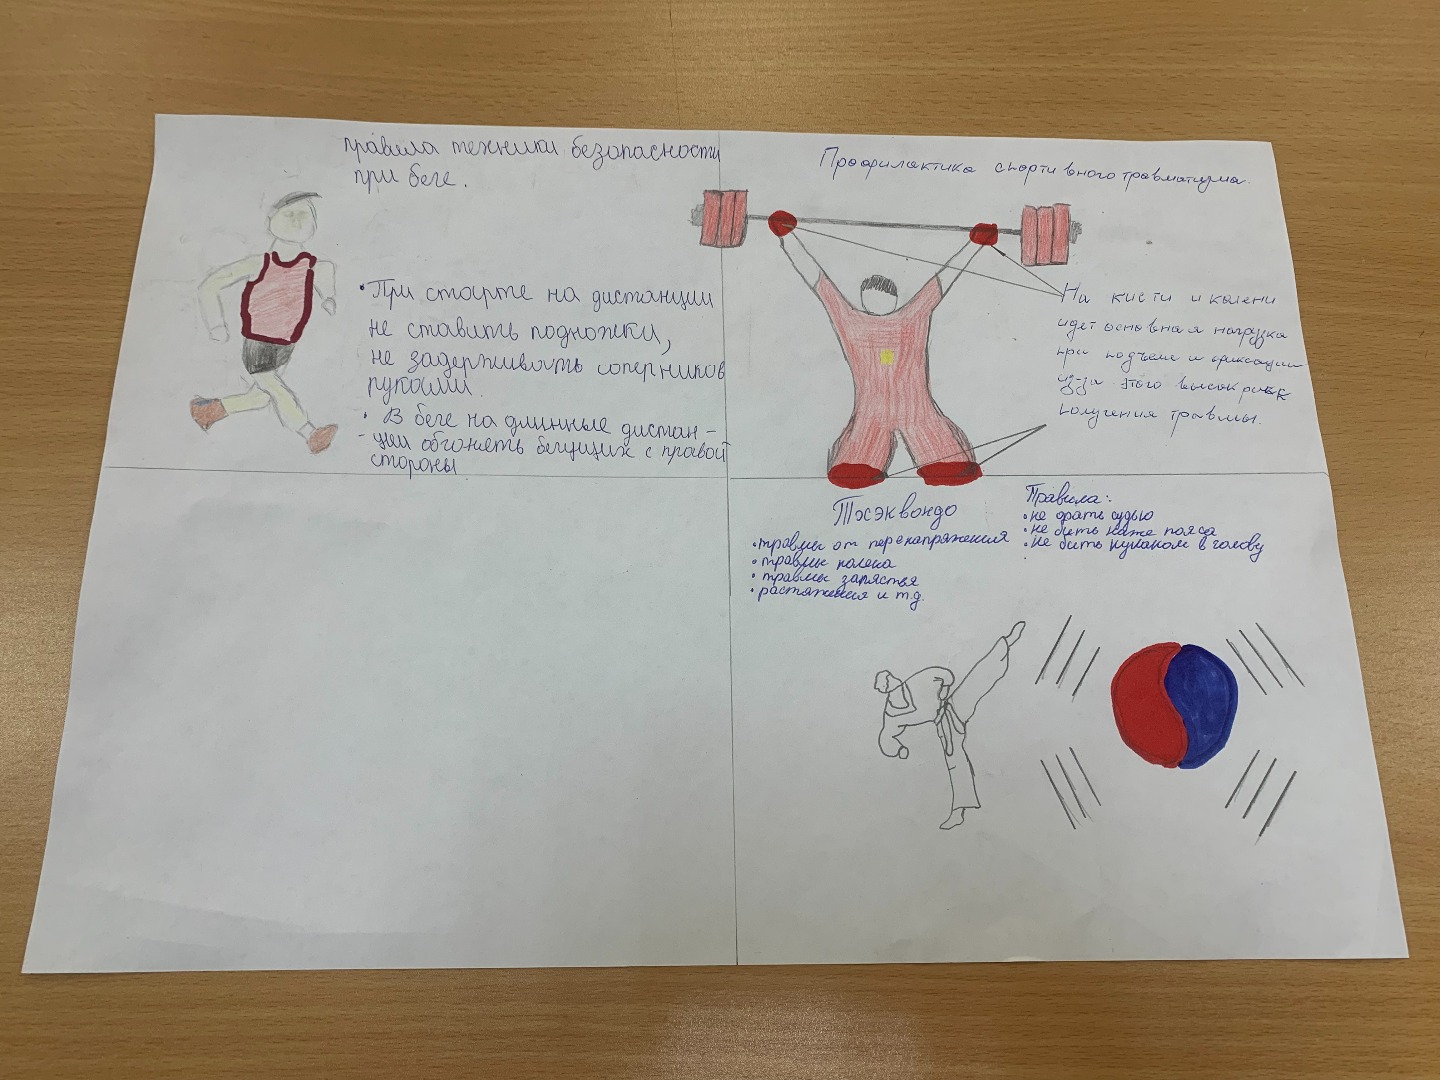 правила техники безопасности
при беге.
• При старте на дистанции
не ставить подножки,
не задерживать соперников
руками.
• В беге на длинные дистан -
- ции обгонять бегущих с правой
стороны
Профилактика спортивного травматизма.
На кисти и колени
идет основная нагрузка
при подъеме и фиксации
из-за этого высок риск
получения травмы.
Тхэквондо
• травмы от перенапряжения
• травмы колена
• травмы запястья
• растяжения и т.д.
Правила:
• не орать судью
• не бить ниже пояса
• не бить кулаком в голову